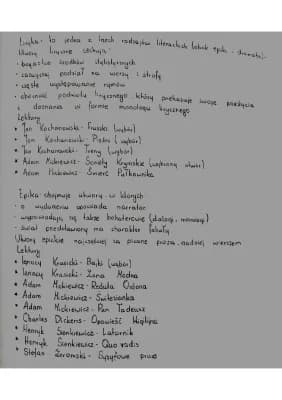 Liryka- to jeden z trzech rodzajów literackich (obok epiki i dramatu).
Utwory liryczne cechują:
- bogactwo środków stylistycznych
- zazwyczaj podział na wersy i strofy
- częste występowanie rymów
- obecność podmiotu lirycznego, który przekazuje swoje przeżycia
i doznania w formie monologu lirycznego
Lektury
• Jan Kochanowski- Fraszki (wybór)
• Jan Kochanowski- Pieśni (wybór)
• Jan Kochanowski- Treny (wybór)
• Adam Mickiewicz- Sonety Krymskie (wybrany utwór)
• Adam Mickiewicz- Śmierć Pułkownika
Epika- obejmuje utwory w których
- o wydarzeniu opowiada narrator
- wypowiadają się także bohaterowie (dialogi, monologi)
- świat przedstawiony ma charakter fabuły
Utwory epickie najczęściej są pisane prozą, rzadziej wierszem
Lektury
• Ignacy Krasicki- Bajki (wybór)
• Ignacy Krasicki- Żona Modna
• Adam Mickiewicz- Reduta Ordona
• Adam Mickiewicz- Świtezianka
• Adam Mickiewicz- Pan Tadeusz
• Charles Dickens- Opowieść Wigilijna
• Henryk Sienkiewicz- Latarnik
• Henryk Sienkiewicz- Quo vadis
• Stefan Żeromski- Syzyfowe prace